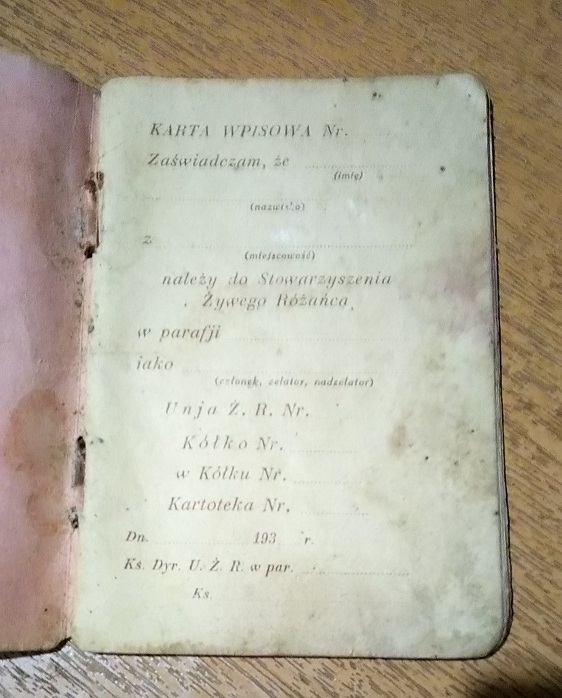 KARTA WPISOWA Nr.
Zaświadczam, że
(imię)
(nazwisko)
z
(miejscowość)
należy do Stowarzyszenia
Żywego Różańca,
w parafji
jako
(członek, zelator, nadzelator)
Unja Ż. R. Nr.
Kółko Nr.
w Kółku Nr.
Kartoteka Nr.
Dn. 193 r.
Ks. Dyr. U. Ż. R. w par.
Ks.